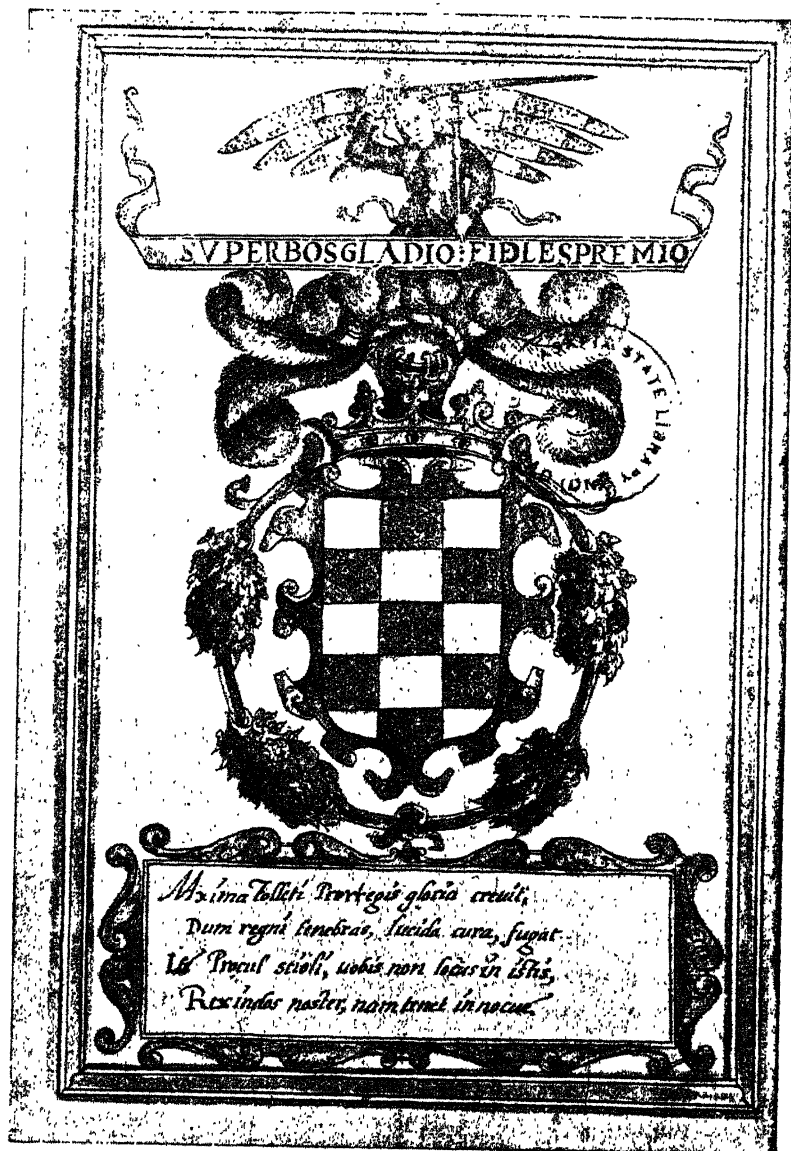 SVPERBOS GLADIO: FIDLES PREMIO
STATE LIBRARY
Maxima Tolleti Prorregis gloria creuit,
Dum regni tenebras, lucida cura, fugat
Ite Procul scioli, uobis non locus in istis,
Rex indos noster, nam tenet innocue.